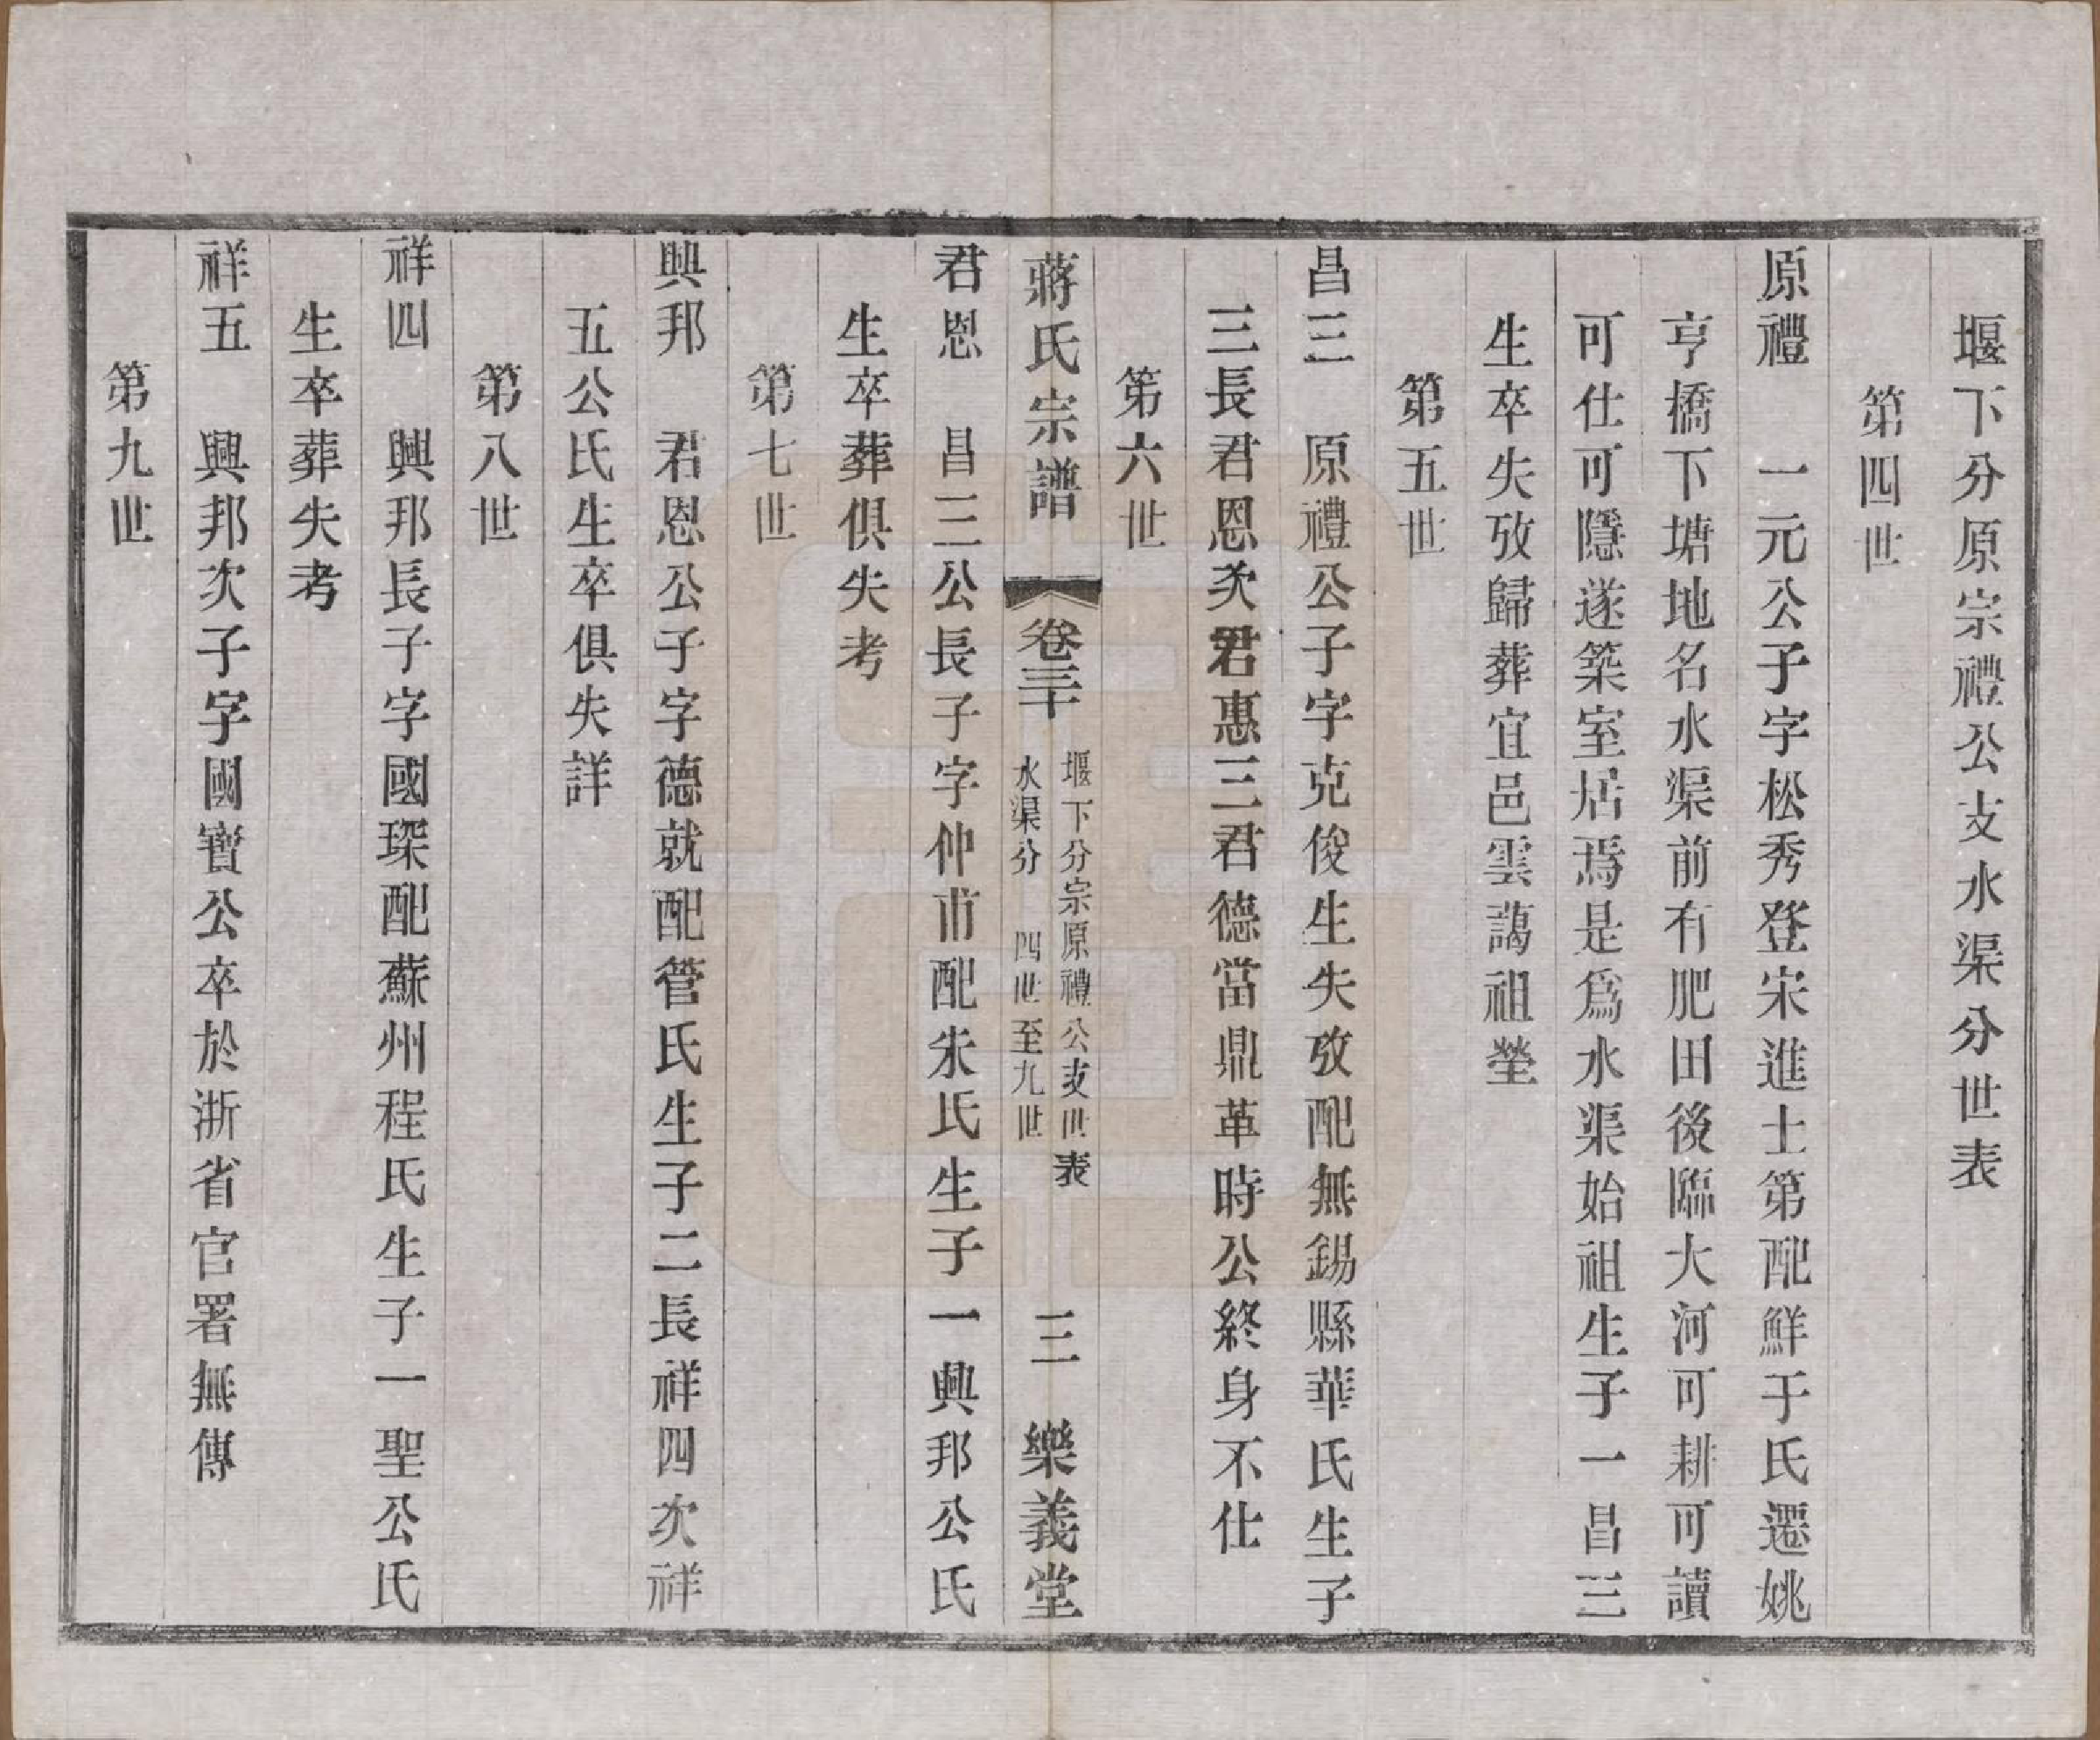 堰下分原宗禮公支水渠分世表
第四世
原禮　一元公子字松秀登宋進士第配鮮于氏遷姚
亨橋下塘地名水渠前有肥田後臨大河可耕可讀
可仕可隱遂築室居焉是爲水渠始祖生子一昌三
生卒失攷歸葬宜邑雲藹祖塋
第五世
昌三　原禮公子字克俊生失攷配無錫縣華氏生子
三長君恩次君惠三君德當鼎革時公終身不仕
第六世
蔣氏宗譜　卷三十　堰下分宗原禮公支世表
水渠分　四世至九世　三　樂義堂
君恩　昌三公長子字仲甫配朱氏生子一興邦公氏
生卒葬俱失考
第七世
興邦　君恩公子字德就配管氏生子二長祥四次祥
五公氏生卒俱失詳
第八世
祥四　興邦長子字國琛配蘇州程氏生子一聖公氏
生卒葬失考
祥五　興邦次子字國寶公卒於浙省官署無傳
第九世